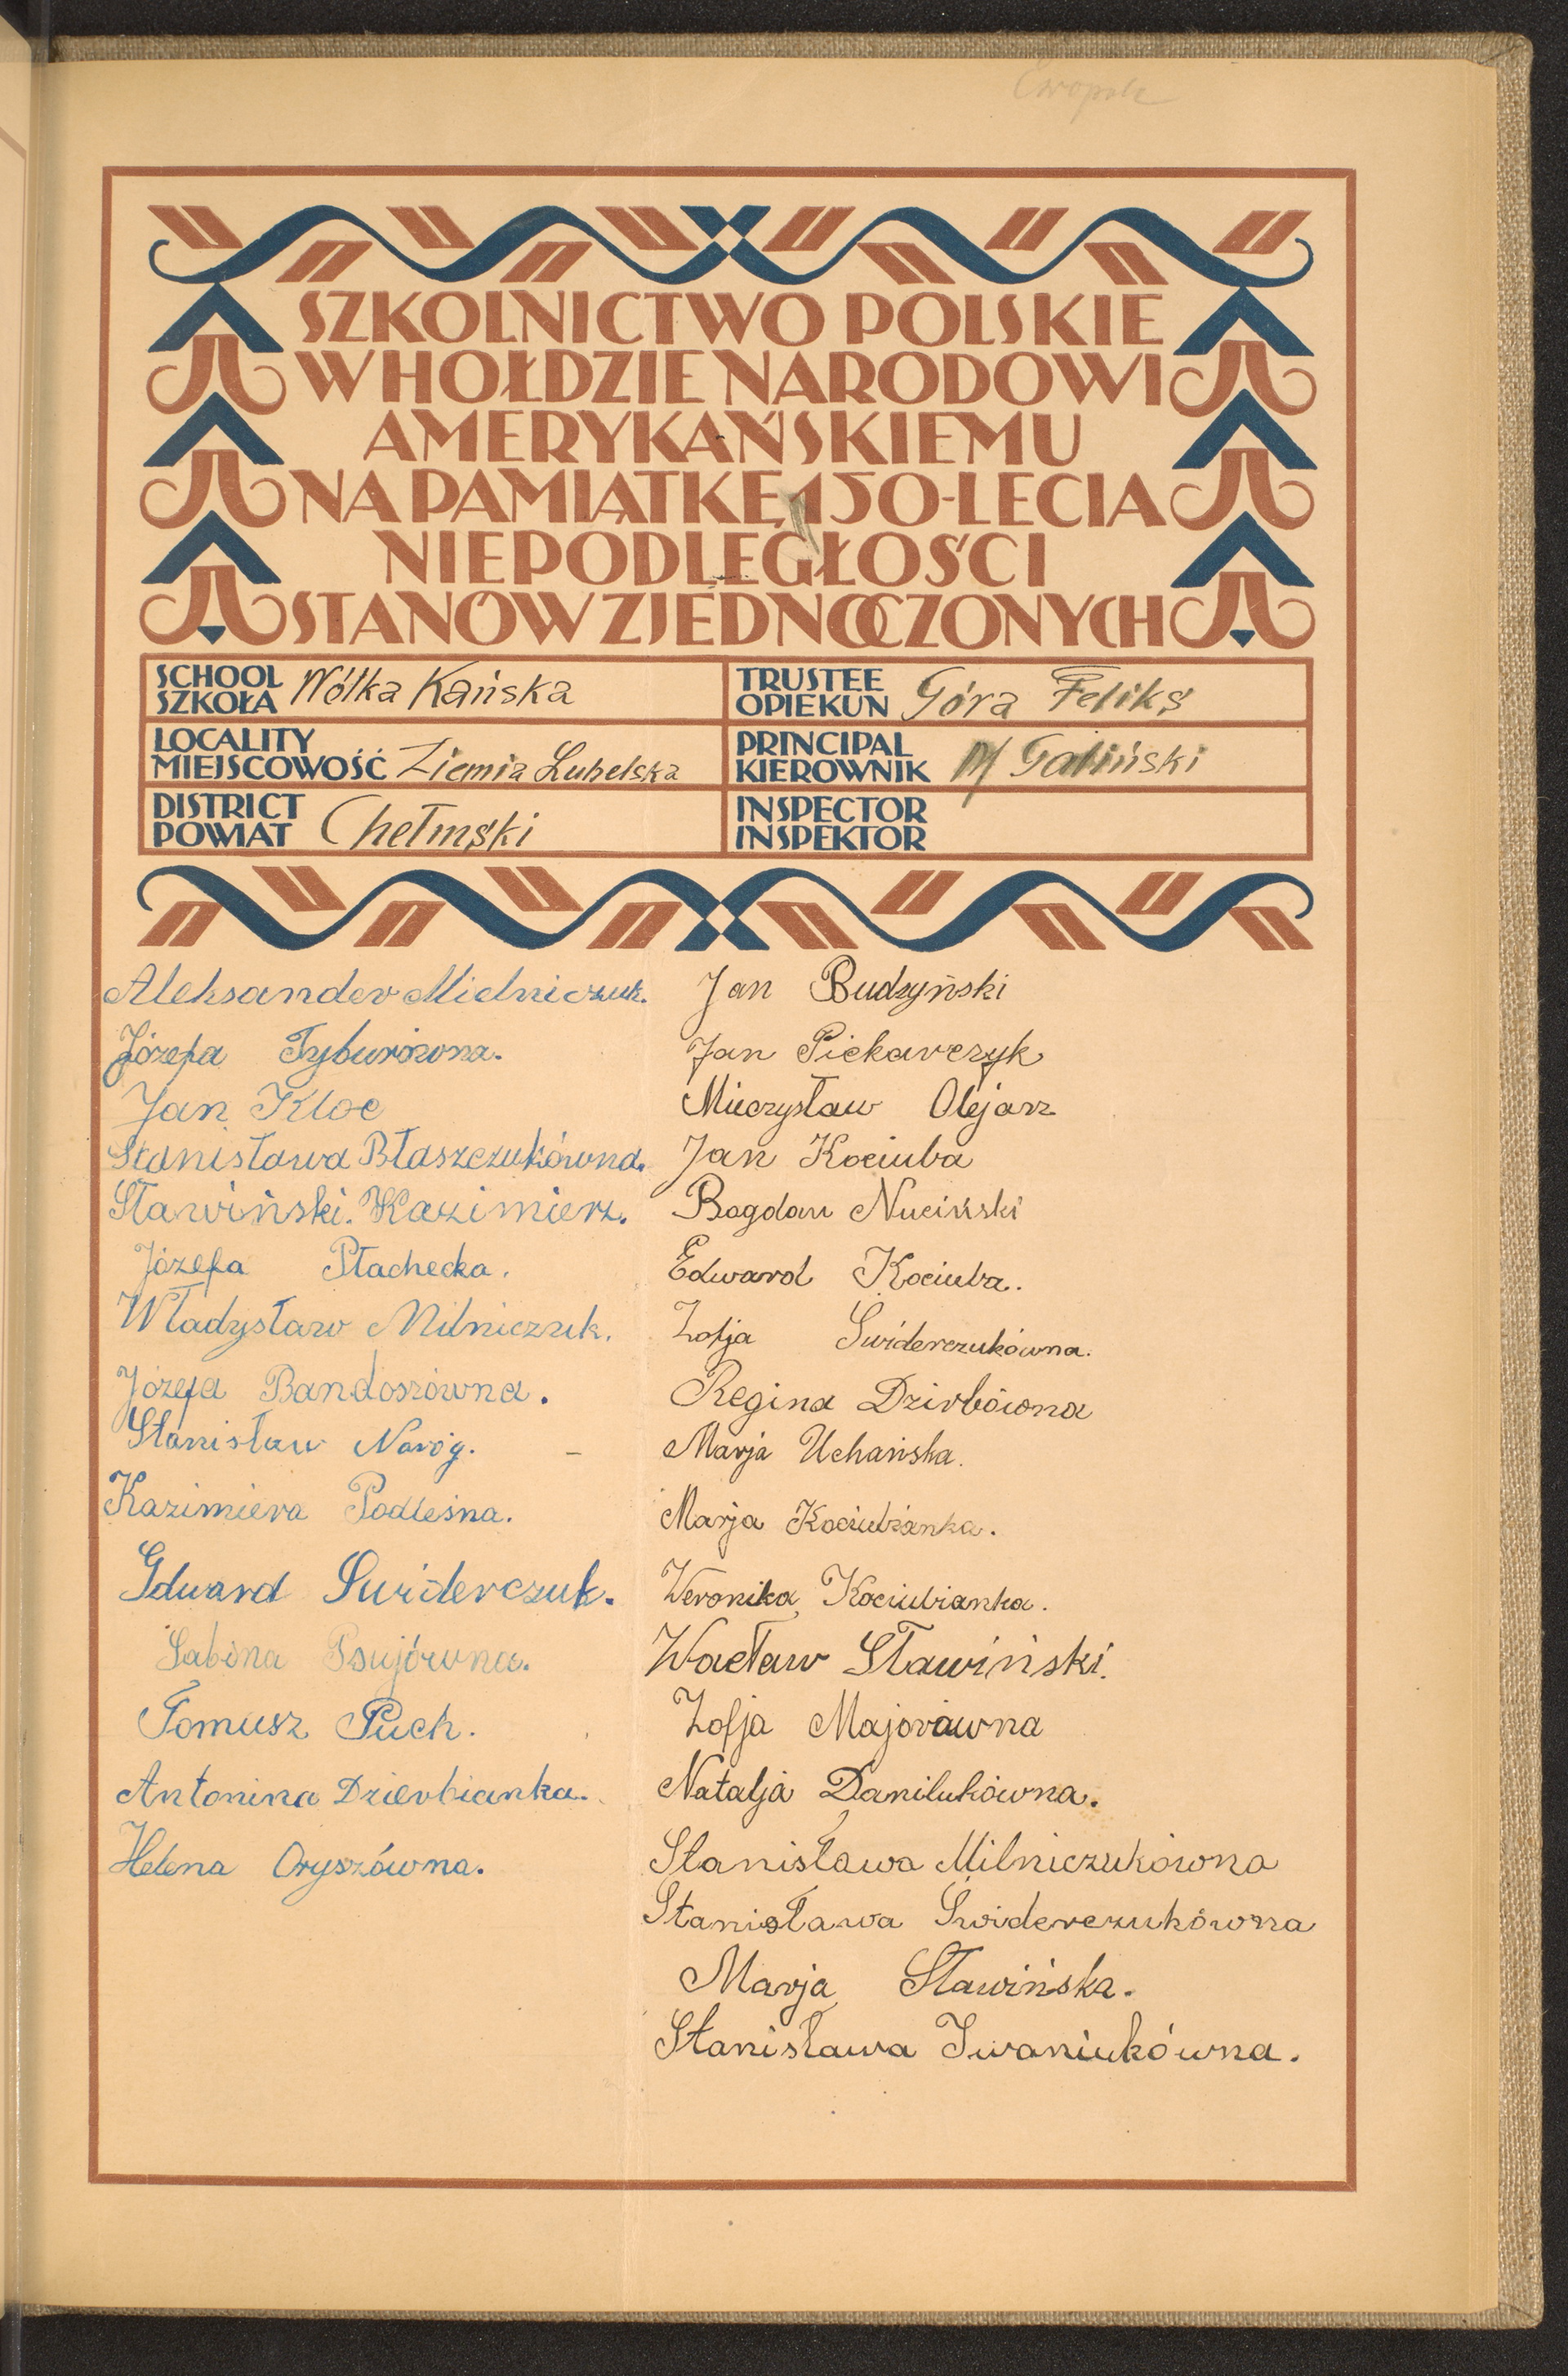 SZKOLNICTWO POLSKIE
W HOŁDZIE NARODOWI
AMERYKAŃSKIEMU
NA PAMIĄTKĘ 150-LECIA
NIEPODLEGŁOŚCI
STANÓW ZJEDNOCZONYCH
SCHOOL
SZKOŁA Wólka Kańska
TRUSTEE
OPIEKUN Góra Feliks
LOCALITY
MIEJSCOWOŚĆ Ziemia Lubelska
PRINCIPAL
KIEROWNIK M Galiński
DISTRICT
POWIAT Chełmski
INSPECTOR
INSPEKTOR
Aleksander Mielniczuk.
Józefa Tyburówna.
Jan Kloc
Stanisława Błaszczukówna.
Sławiński. Kazimierz.
Józefa Płachecka.
Władysław Milniczuk.
Józefa Bandosówna.
Stanisław Naróg. -
Kazimiera Podleśna.
Edward Swiderczuk.
Sabina Psujówna.
Tomusz Puch.
Antonina Dzierbianka.
Helena Oryszówna.
Jan Budzyński
Jan Piekarczyk
Mieczysław Olejarz
Jan Kociuba
Bogdan Nuciński
Edward Kociuba.
Zofja Swiderczukówna.
Regina Dzirbówna
Marja Uchańska.
Marja Kociubianka.
Weronika Kociubianka.
Wacław Sławiński.
Zofja Majorówna
Natalja Danilukówna.
Stanisława Milniczukówna
Stanisława Swiderczukówna
Marja Sławińska.
Stanisława Iwaniukówna.